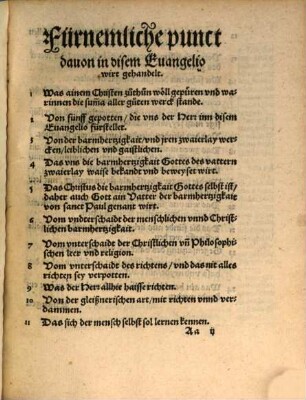 Fürnemliche punct
dauon in disem Euangelio
wirt gehandelt.
1 Was ainem Christen zůthůn wöll gepüren vnd wa-
rinnen die suma aller gůten werck stande.
2 Von fünff gepotten, die vns der Herr inn disem
Euangelio fürstellet.
3 Von der barmhertzigkait, vnd jren zwaierlay wer-
cken, leiblichen vnd gaistlichen.
4 Das vns die barmhertzigkait Gottes des vattern
zwaierlay waise bekandt vnd beweyset wirt.
5 Das Christus die barmhertzigkait Gottes selbst ist/
daher auch Gott ain Vatter der barmhertzigkait
von sanct Paul genant wirt.
6 Vom vndterschaidt der menschlichen vnnd Christ-
lichen barmhertzigkait.
7 Vom vnterschaidt der Christlichen vñ Philosophi-
schen leer vnd religion.
8 Vom vnterschaidt des richtens / vnd das nit alles
richten sey verpotten.
9 Was der Herr allhie haisse richten.
10 Von der gleißnerischen art / mit richten vnnd ver-
dammen.
11 Das sich der mensch selbst sol lernen kennen.
Aa ij